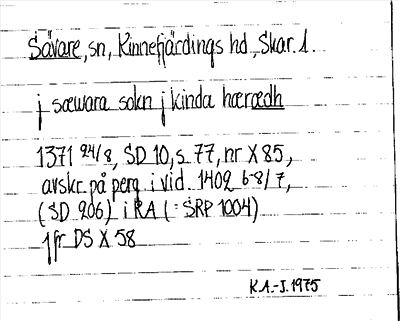 Sävare, sn, Kinnefjärdings hd., Skar. l.
j sæwara sokn j kinda hæræedh
1371 24/8, SD 10, s. 77, nr X 85,
avskr. på perg. i vid. 1402 6-8/7,
(SD 206) i RA (= SRP 1004)
jfr DS X 58
K.A.-J. 1975